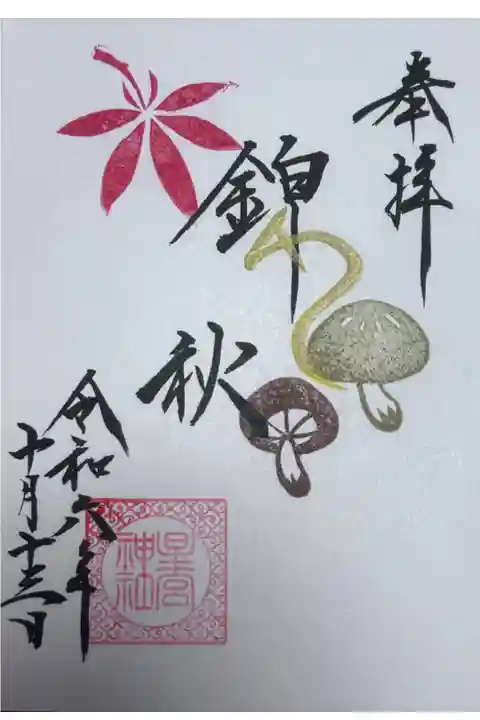 奉拝
錦秋
令和六年
十月十三日
星宮
神社